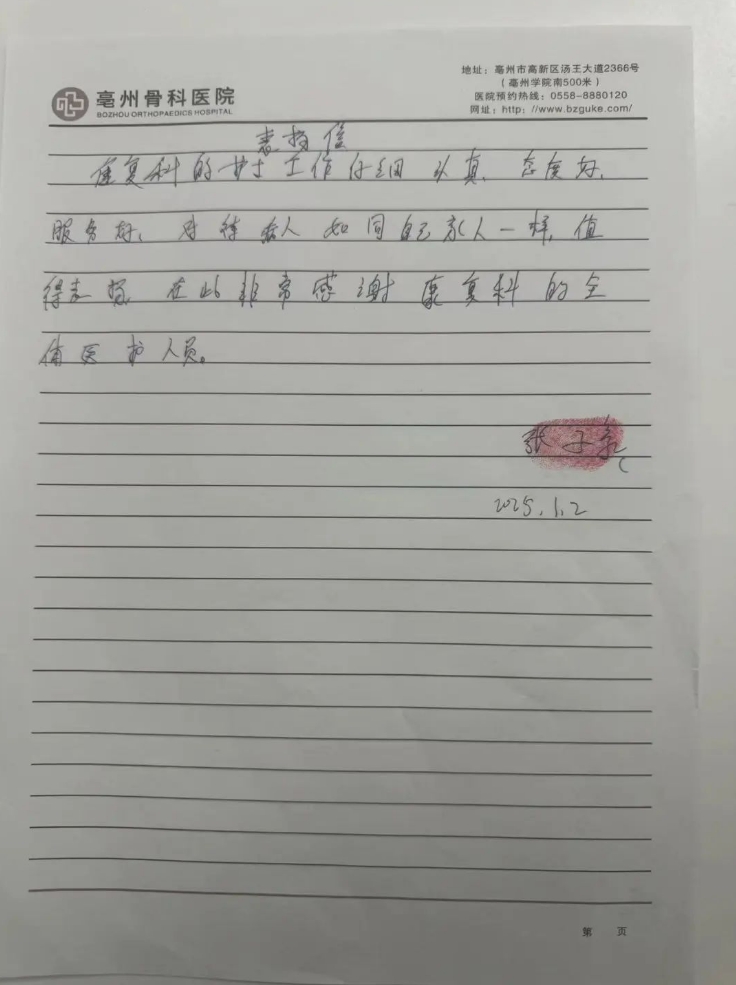 亳州骨科医院
BOZHOU ORTHOPAEDICS HOSPITAL
地址：亳州市高新区汤王大道2366号
（亳州学院南500米）
医院预约热线：0558-8880120
网址：http：//www.bzguke.com/
表扬信
康复科的护士工作仔细认真、态度好、
服务好、对待病人如同自己家人一样，值
得表扬，在此非常感谢康复科的全
体医护人员。
张子
2025.1.2
第 页